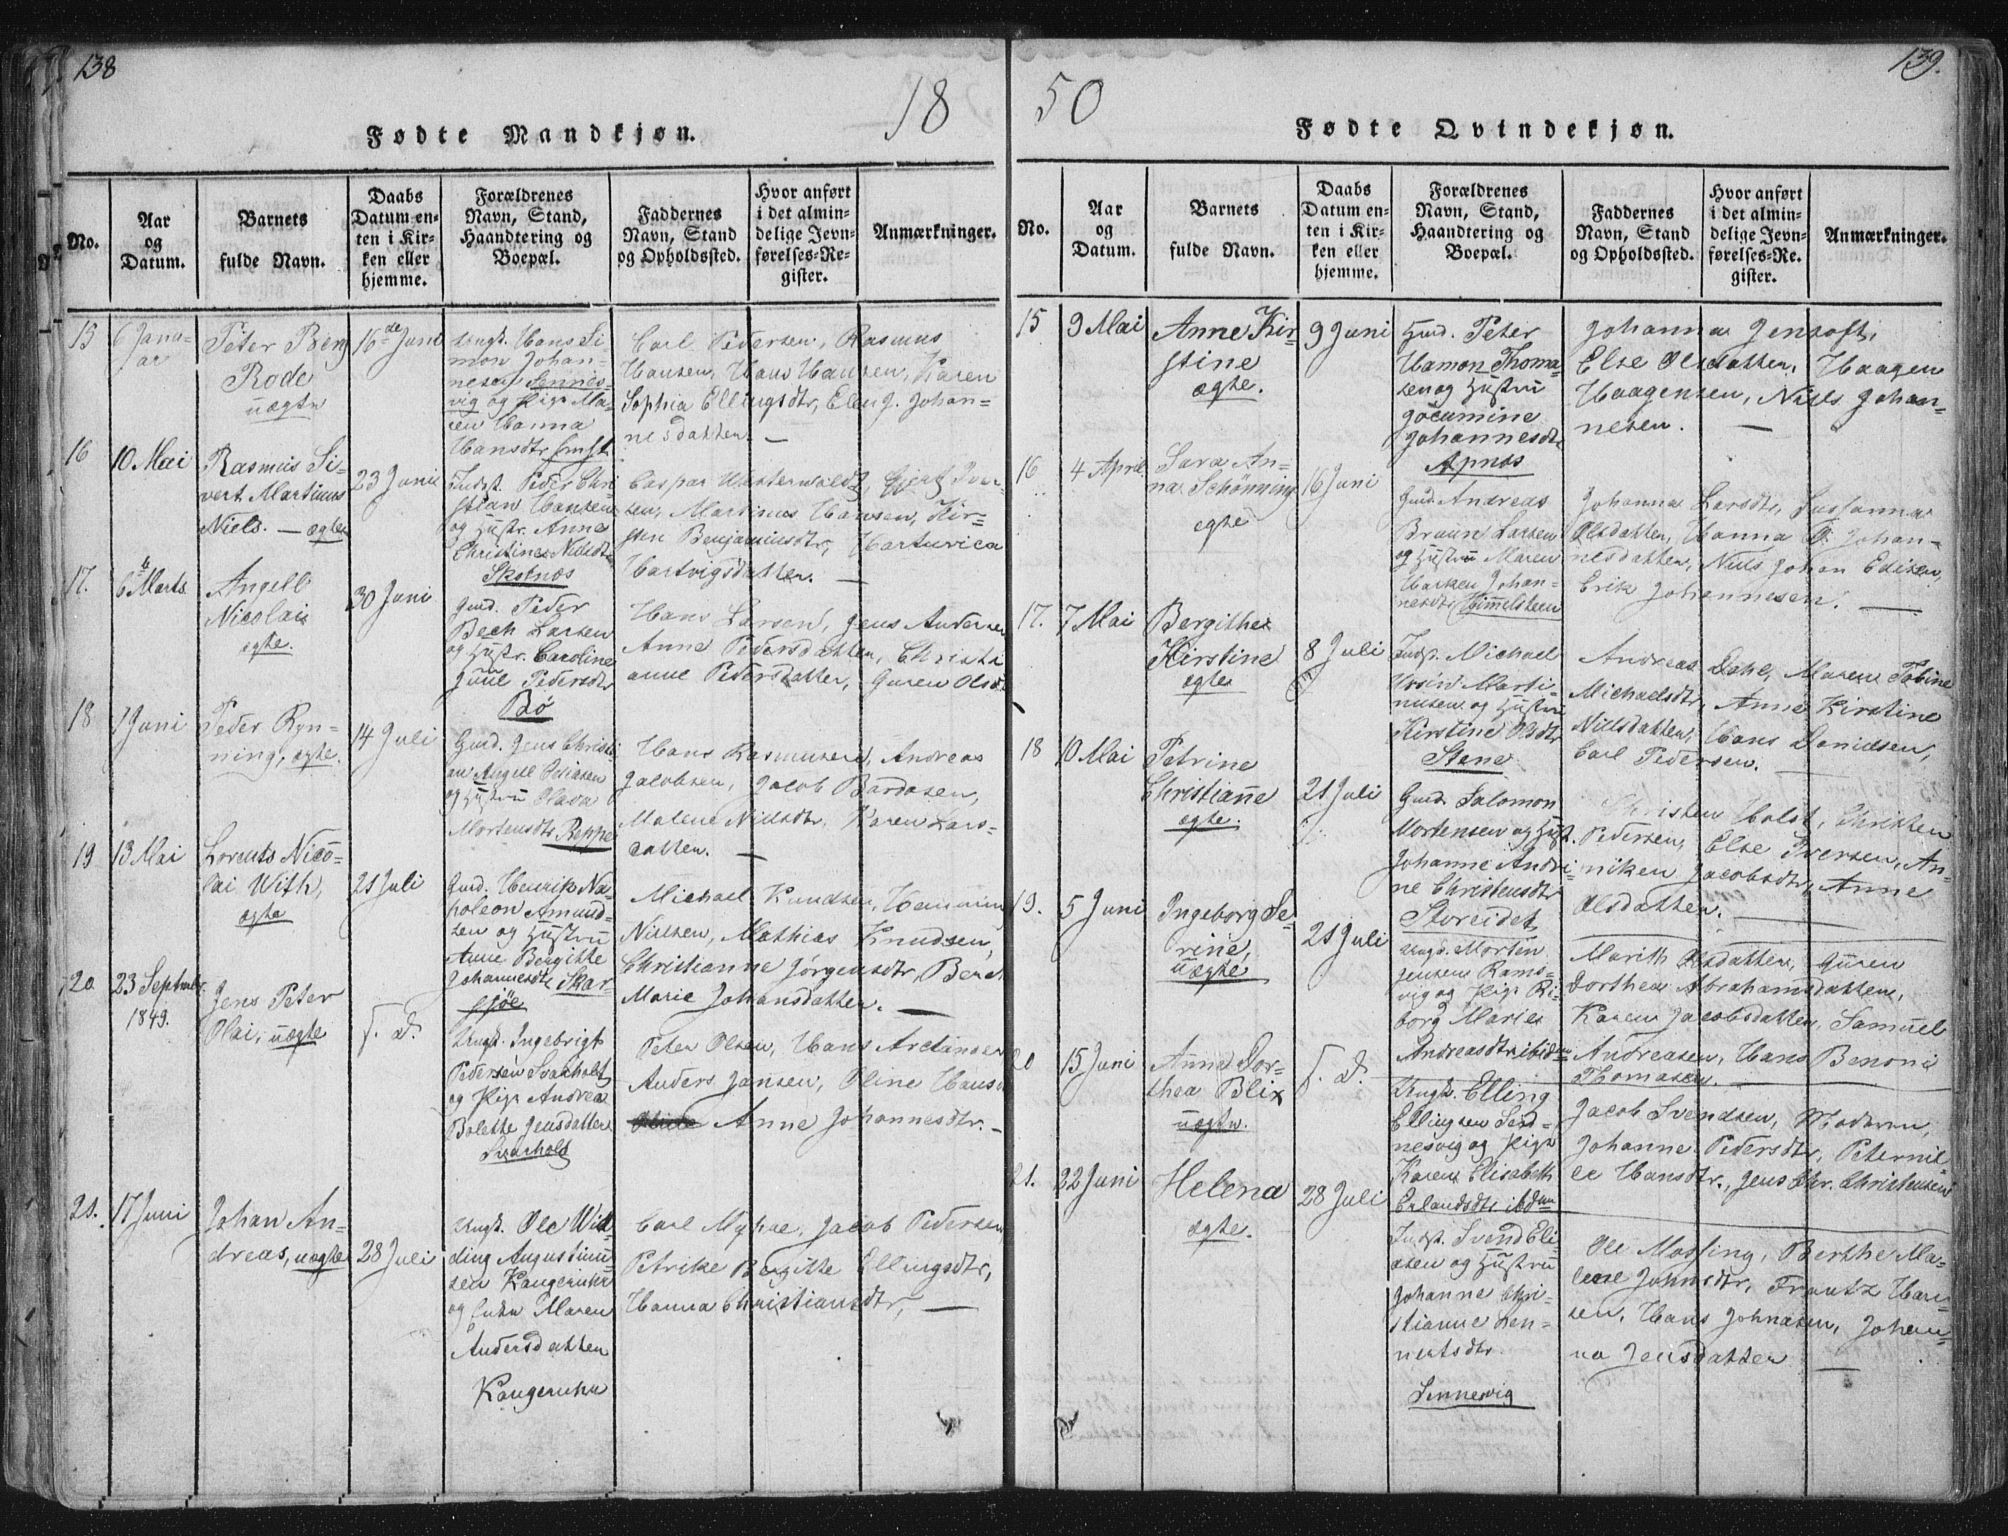 138
18
Fødte Mandkjøn.
No.
Aar
og
Datum.
Barnets
fulde Navn.
Daabs
Datum en-
ten i Kir-
ken eller
hjemme.
Forældrenes
Navn, Stand,
Haandtering og
Boepæl.
Faddernes
Navn, Stand
og Opholdssted.
Hvor anført
i det almin-
delige Jevn-
førelses-Re-
gister.
Anmærkninger.
15
6 Janu-
ar
Peter Benj
Rode
uægte
16de Juni
Ungk. Hans Si-
mon Johan-
nesen Sennes-
vig og Pige Ma-
ren Hanna
Hansdtr
Carl Pedersen, Rasmus
Hansen, Hans Hansen, Karen
Sophia Ellingsdtr, Elen J. Johan-
nesdatter. —
16
10 Mai
Rasmus Si-
vert Martinus
Niels. — ægte
23 Juni
Indst. Peder Chri-
stian Hansen
og Hustr. Anne
Christine Nilsdtr
Skotnæs
Caspar Westerwaldt, Gjert Iver-
sen, Martinus Hansen, Kir-
sten Benjaminsdtr, Hartvica
Hartvigsdatter. —
17.
6 Marts
Angell
Nicolai
ægte.
30 Juni
Gmd. Peder
Bech Larsen
og Hustr. Caroline
Juul Pedersdtr
Bø
Hans Larsen, Jens Andersen
Anne Pedersdatter, Christi
anne Pedersdatter, Guren Olsd
18
1 Juni
Peder Ryn-
ning, ægte.
14 Juli
Gmd. Jens Christi
an Angell
og Hustru Olava
Mortensdtr Reppe
Hans Rasmusen, Andreas
Jacobsen, Jacob Bardosen,
Malene Nilsdtr. Karen Lars-
datter. —
19
13 Mai
Lorents Nico-
lai With,
ægte
21 Juli
Gmd. Henrik Na-
poleon Amund-
sen og Hustru
Anne Bergitte
Johannesdtr Skar-
sjøe
Michael Knudsen,
Nilsen, Mathias Knudsen,
Christianne Jørgensdtr, Beret
Marie Johansdatter. —
20
23 Septembr
1849.
Jens Peter
Olai, uægte
s. d.
Ungk. Ingebrigt
Pedersen Svarholt
og Pige Andrea
Bolette Jensdatter
Svarholt
Peter Olsen, Hans Arctander
Anders Jansen, Oline Hansd
Anne Johannesdtr. —
21.
17 Juni
Johan An-
dreas, uægte
28 Juli
Ungk. Ole Wid
ding Augustinu-
sen Kangerurn
og Enke Maren
Andersdatter
Kangerurn
Carl Myhre, Jacob Pedersen
Petrike Bergitte Ellingsdtr,
Hanna Christiansdtr, —
139.
50
Fødte Qvindekjøn.
No.
Aar
og
Datum.
Barnets
fulde Navn.
Daabs
Datum en-
ten i Kir-
ken eller
hjemme.
Forældrenes
Navn, Stand,
Haandtering og
Boepæl.
Faddernes
Navn, Stand
og Opholdssted.
Hvor anført
i det almin-
delige Jevn-
førelses-Re-
gister.
Anmærkninger.
15
9 Mai
Anne Kir-
stine
ægte.
9 Juni
Gmd. Peter
Hamon Thoma-
sen og Hustru
Jocumine
Johannesdtr
Apnæs
Johanna Jentoft,
Else Olsdatter, Haagen
Haagensen, Niels Johan-
nesen. —
16
4 April
Sara An-
na Schønning
egte
16 Juni
Gmd. Andreas
Bruun Larsen
og Hustru Maren
Johan-
nesdtr Himmelsteen
Johanna Larsdtr, Susanna
Olsdatter, Hanna O. Johan-
nesdatter, Niels Johan Edisen,
Erik Johannesen. —
17.
7 Mai
Bergithe
Kirstine
ægte
8 Juli
Indst. Michael
Ursin Marti-
nusen og Hustru
Kirstine Olsdtr
Stene
Andreas Dahl, Maren Tobine
Michaelsdtr, Anne Kirstine
Nilsdatter, Hans Danielsen,
Carl Pedersen. —
18
10 Mai
Petrine
Christianne
ægte.
21 Juli
Gmd. Salomon
Mortensen og Hust.
Johanne Andri-
ne Christensdtr
Storeidet
Christen Holst, Christen
Pedersen, Else Iversen, An-
niken Jacobsdtr, Anne
Olsdatter. —
19.
5 Juni
Ingeborg Se-
rine,
uægte
21 Juli
Ungk. Morten
Jensen Rams-
vig og Pige Ri-
borg Marie
Andreasdtr ibidem
Marith Olsdatter, Guren
Dorthea Abrahamsdatter,
Karen Jacobsdatter, Samuel
Andreasen, Hans Benoni
Thomasen.
20
15 Juni
Anna Dor-
thea Blix
uægte.
s. d.
Ungk. Elling
Ellingsen Sen-
nesvig og Pige
Karen Elisabeth
Erlandsdtr ibdm
Jacob Svendsen, Moderen,
Johanne Pedersdtr, Peternil-
le Hansdtr., Jens Chr. Christensen
21.
22 Juni
Helena
ægte.
28 Juli
Indst. Svend Eli-
asen og Hustru
Johanne Chri-
stianne Len-
nertsdtr.
Sennesvig
Ole Mossing, Berthe Ma-
lene Johnsdtr, Frantz Han-
sen, Hans Johnasen, Johan-
na Jensdatter —